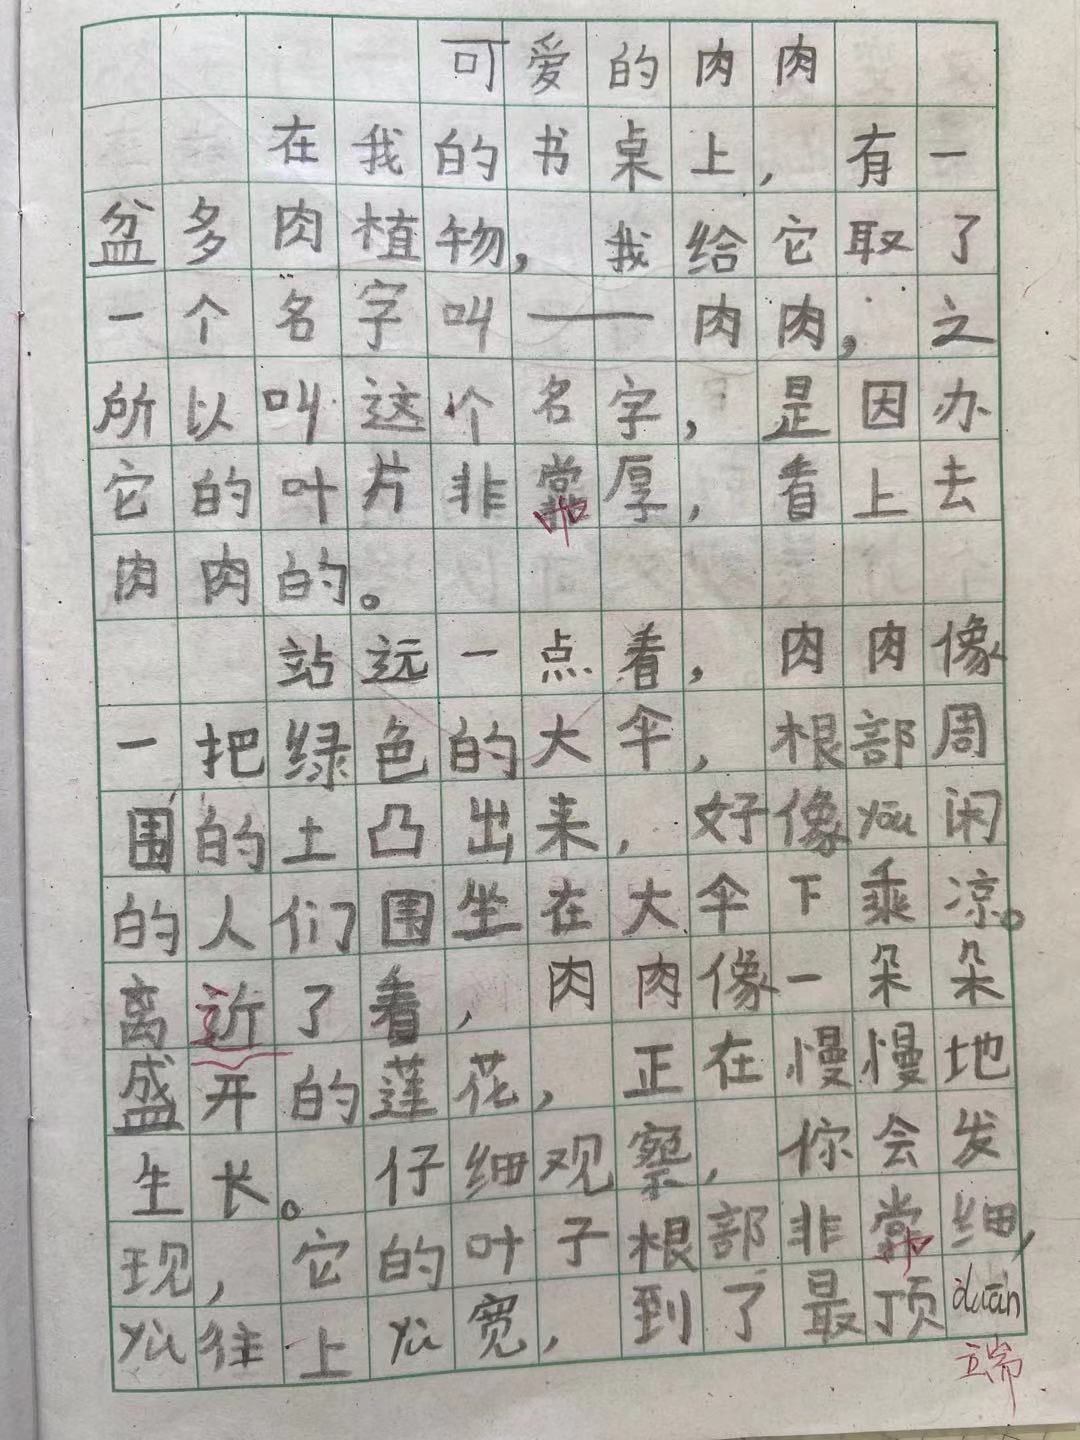 可爱的肉肉
在我的书桌上，有一
盆多肉植物，我给它取了
一个名字叫——肉肉，之
所以叫这个名字，是因办
它的叶片非常厚，看上去
肉肉的。
站远一点看，肉肉像
一把绿色的大伞，根部周
围的土凸出来，好像yōu闲
的人们围坐在大伞下乘凉。
离近了看，肉肉像一朵朵
盛开的莲花，正在慢慢地
生长。仔细观察，你会发
现，它的叶子根部非常细，
yù往上yù宽，到了最顶duān
端